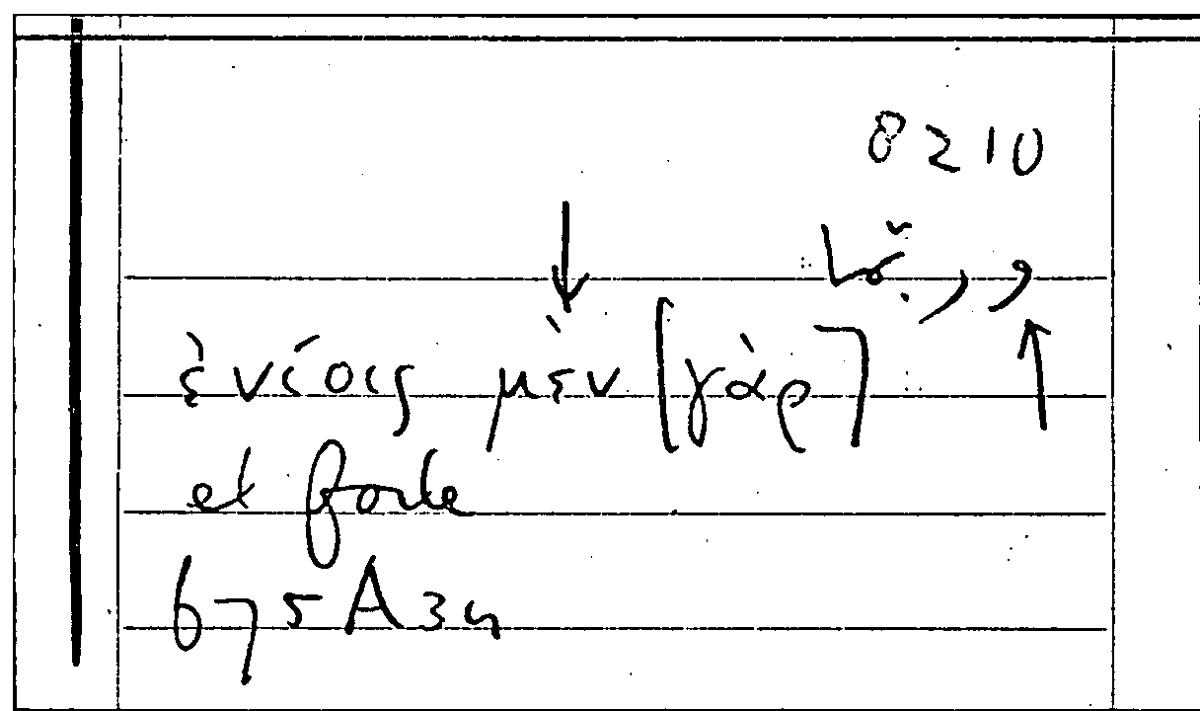 8210
ἐνίοις μὲν [γὰρ]
et forte
675A34